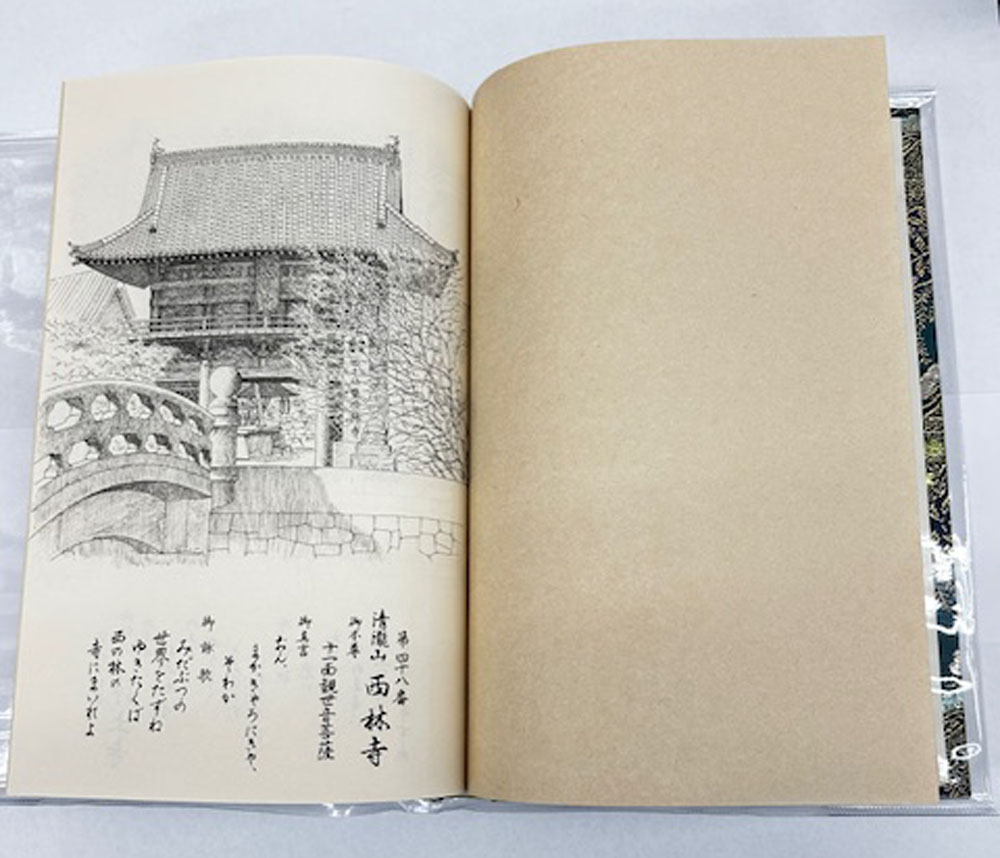 第四十八番
清瀧山 西林寺
御本尊
十一面観世音菩薩
御真言
おん、
まかきゃろにきゃ、
そわか
御詠歌
みだぶつの
世界をたずね
ゆきたくば
西の林の
寺にまいれよ